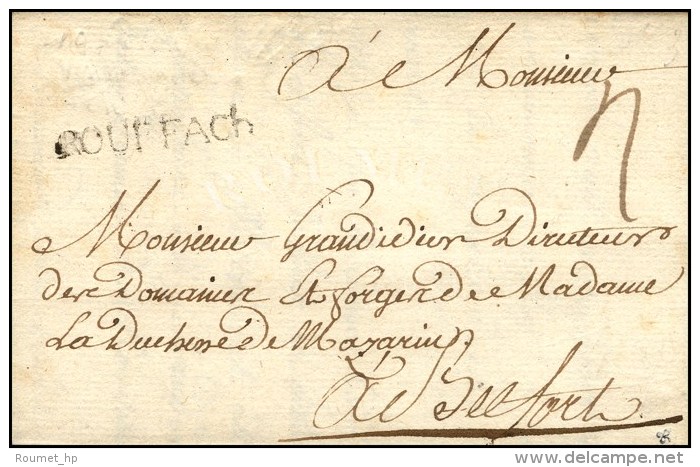 À Monsieur
ROUFFACh
Monsieur Grandidier Directeur
des Domaines Et forges de Madame
La Duchesse de Mazarin
À Belfort
Roumet_hp
delcampe.net